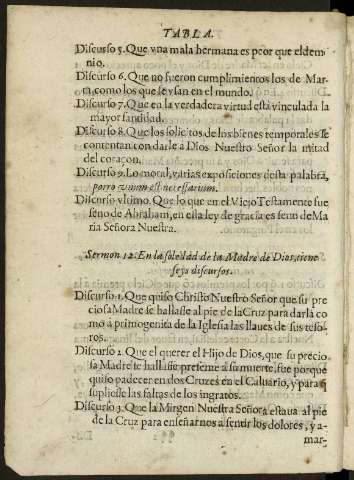 TABLA.
Discurso 5. Que vna mala hermana es peor que el demonio.
nio.
Discurso 6. Que no fueron cumplimientos los de Mar-
ta, como los que se vsan en el mundo.
Discurso 7. Que en la verdadera virtud està vinculada la
mayor santidad.
Discurso 8. Que los solicitos de los bienes temporales se
contentan con darle à Dios Nuestro Señor la mitad
del coraçon.
Discurso 9. Lo moral, varias exposiciones desta palabra,
porro vnum est necessarium.
Discurso vltimo. Que lo que en el Viejo Testamento fue
seno de Abraham, en esta ley de gracia es seno de Ma
ria Señora Nuestra.
Sermon 12. En la soledad de la Madre de Dios, tiene
seys discursos.
Discurso 1. Que quiso Christo Nuestro Señor que su pre
ciosa Madre se hallasse al pie de la Cruz para darla co
mo à primogenita de la Iglesia las llaues de sus teso-
ros.
Discurso 2. Que el querer el Hijo de Dios, que su precio
sa Madre se hallasse presente à su muerte, fue porque
quiso padecer en dos Cruzes en el Caluario, y para q̃
supliesse las faltas de los ingratos.
Discurso 3. Que la Virgen Nuestra Señora estaua al pie
de la Cruz para enseñarnos a sentir los dolores, y a-
mar-